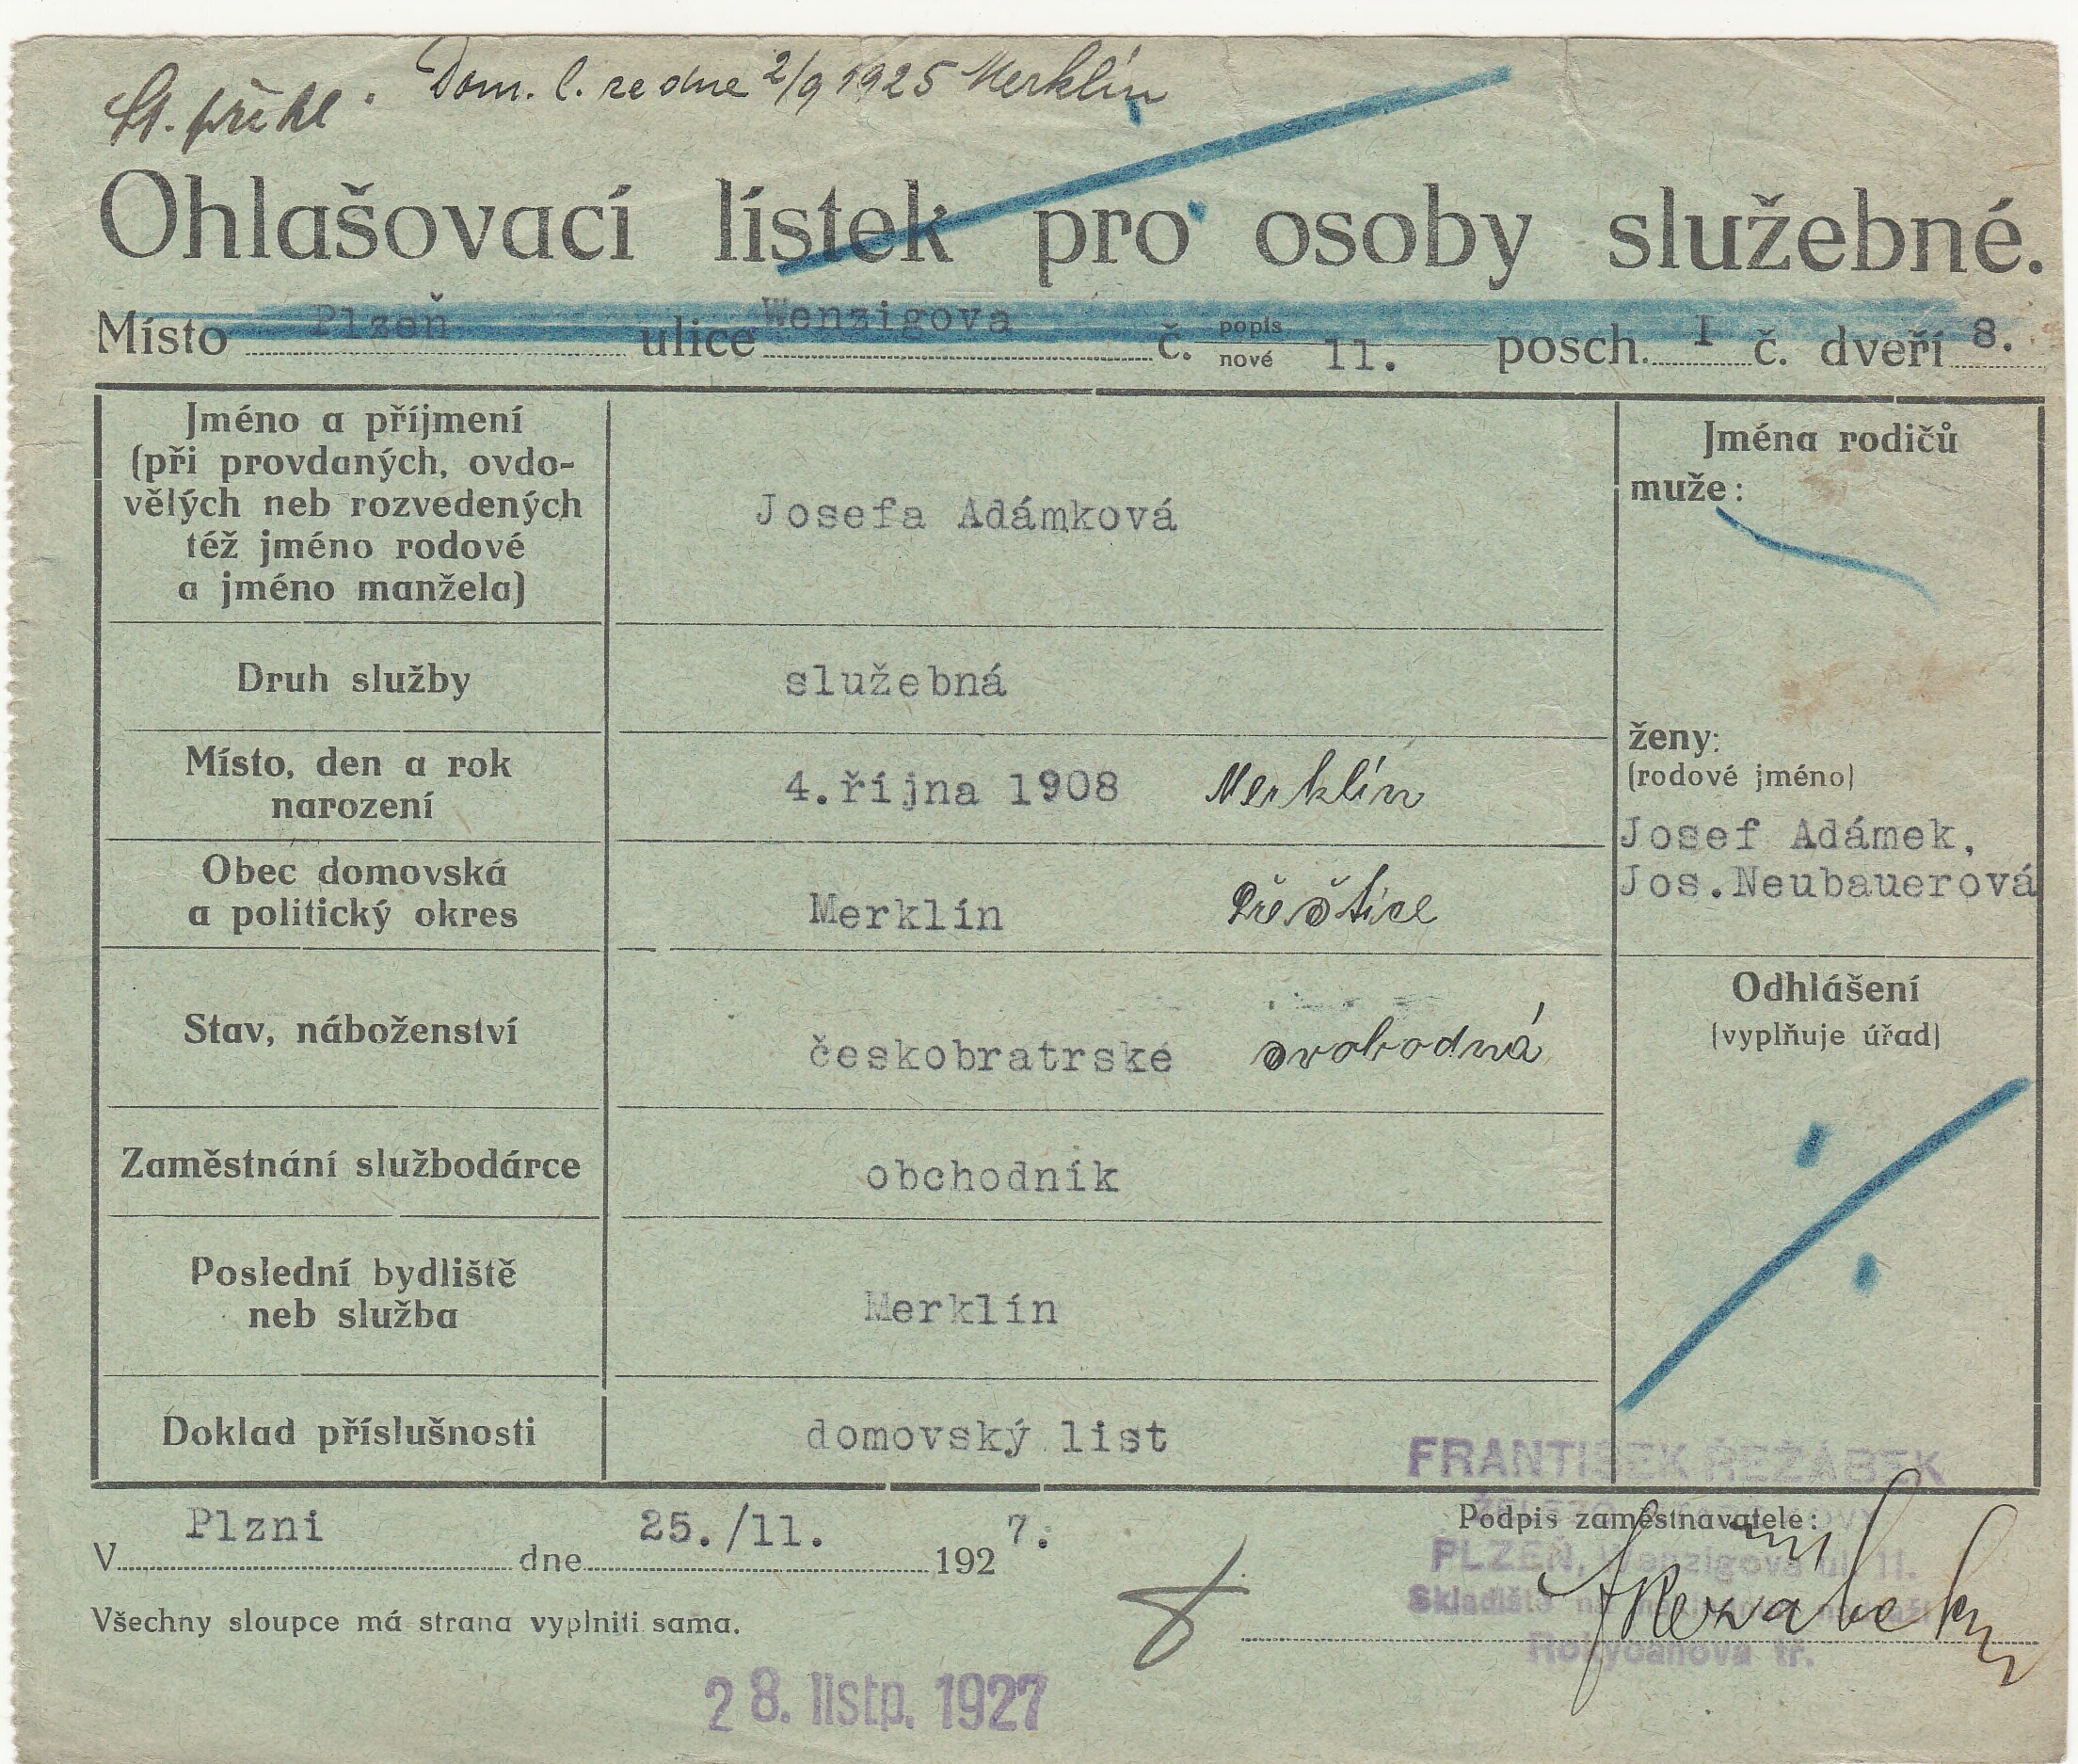 St. přihl. Dom. l. ze dne 2/9 1925 Merklín
Ohlašovací lístek pro osoby služebné.
Místo Plzeň ulice Wenzigova č. popis nové 11. posch. I č. dveří 8.
Jméno a příjmení
(při provdaných, ovdo-
vělých neb rozvedených
též jméno rodové
a jméno manžela)
Josefa Adámková
Jména rodičů
muže:
Druh služby
služebná
Místo, den a rok
narození
4.října 1908 Merklín
ženy:
(rodové jméno)
Josef Adámek,
Jos.Neubauerová
Obec domovská
a politický okres
Merklín Přeštice
Stav, náboženství
českobratrské svobodná
Odhlášení
(vyplňuje úřad)
Zaměstnání službodárce
obchodník
Poslední bydliště
neb služba
Merklín
Doklad příslušnosti
domovský list
FRANTIŠEK ŘEŽÁBEK
V Plzni dne 25./11. 1927.
Podpis zaměstnavatele:
PLZEŇ, Wenzigova ul. 11.
Skladiště
Rokycanova tř.
Všechny sloupce má strana vyplniti sama.
28. listp. 1927